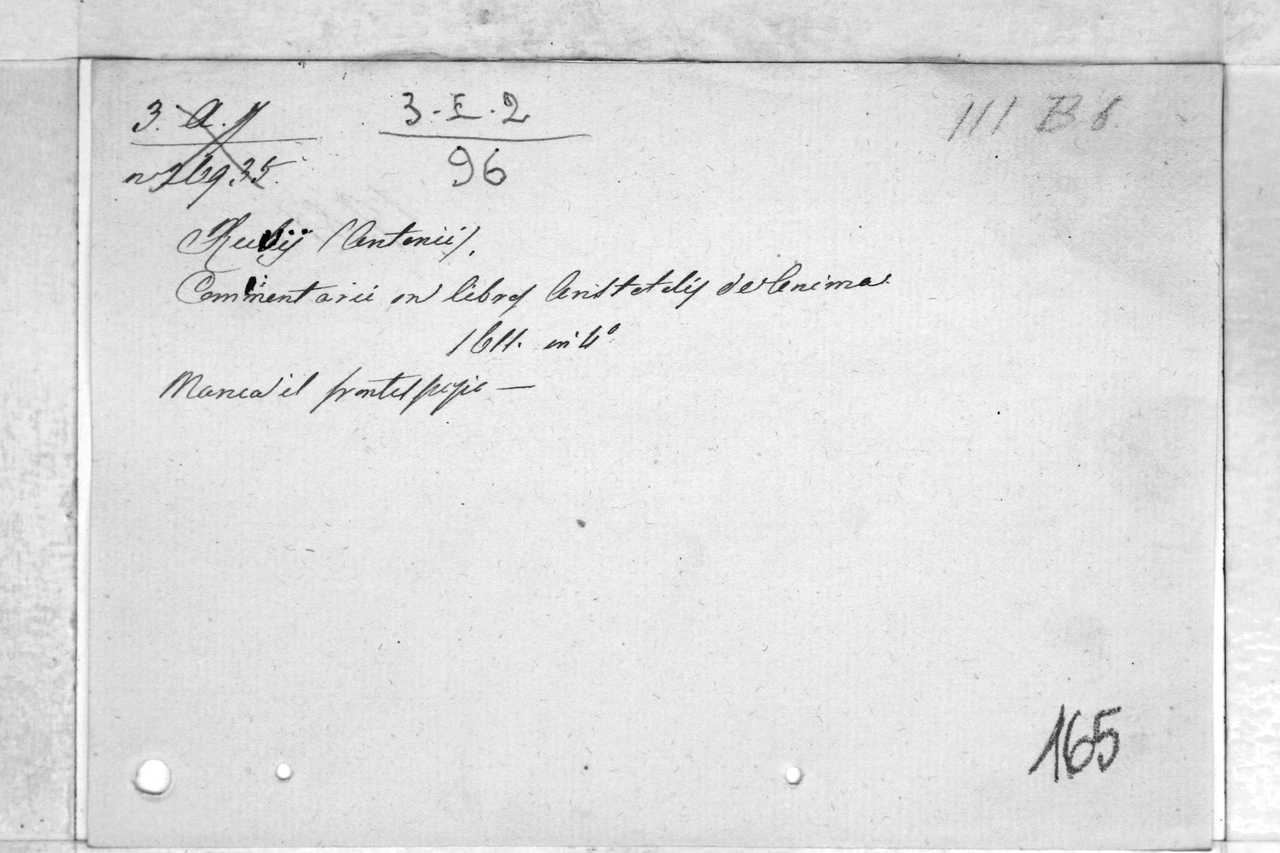 3. A. 7 3-I-2 III B 8
96
Rubij (Antonii),
Commentarii in libros Aristotelis de Anima
1611. in 4°
Manca il frontespizio —
165